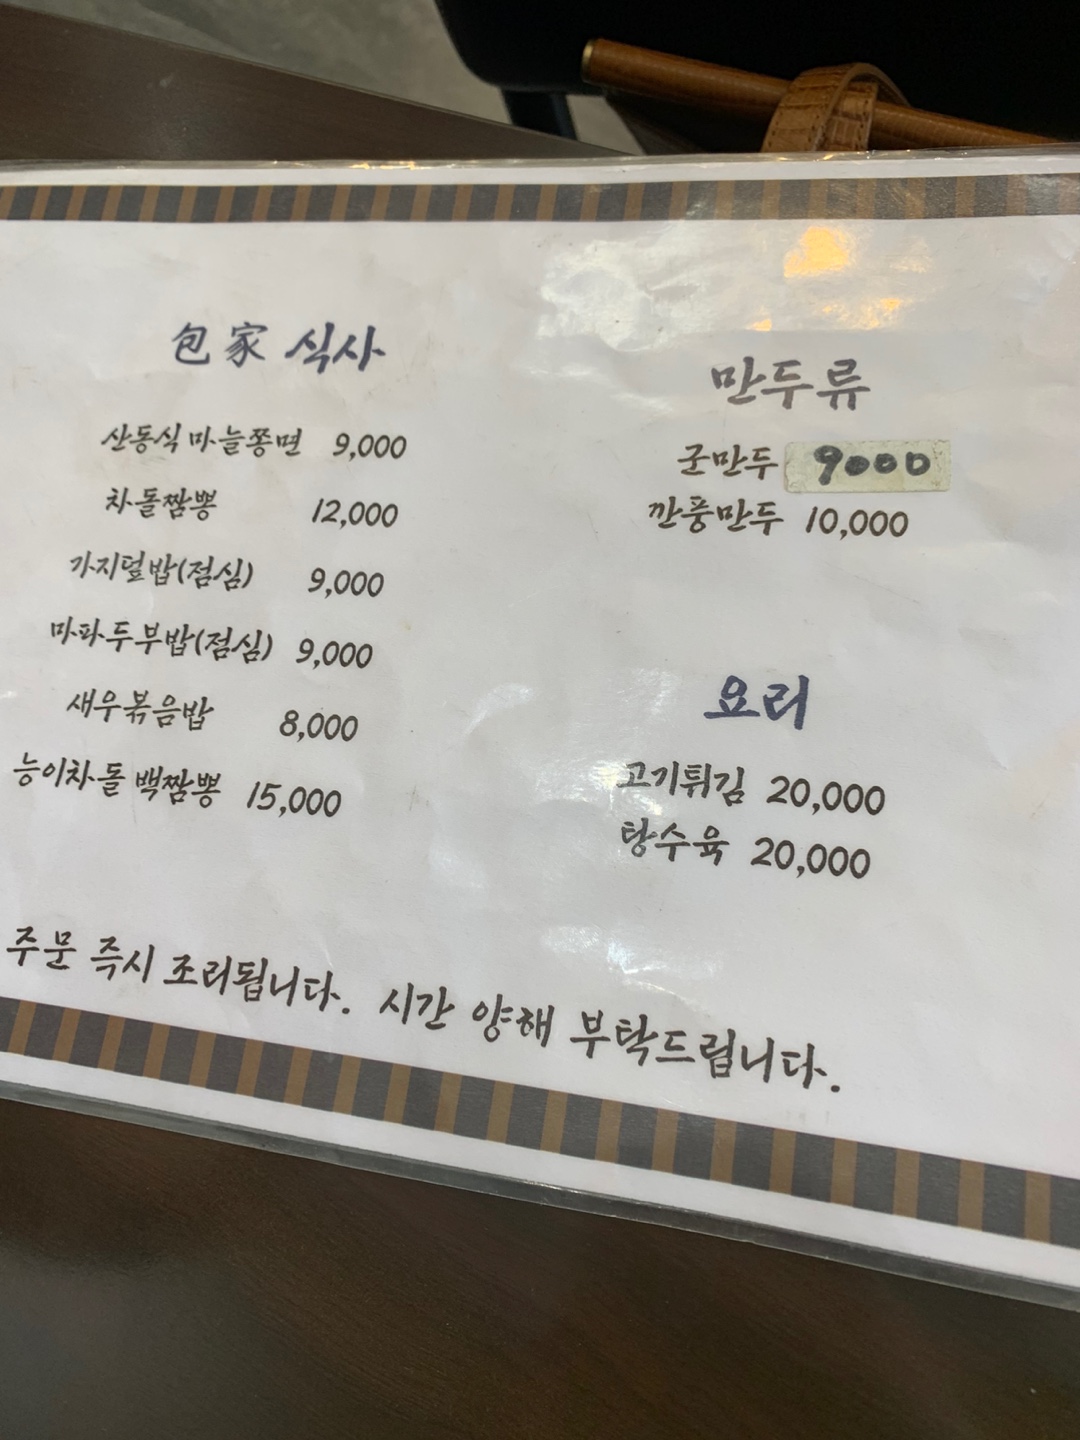 包家 식사
산동식 마늘쫑면 9,000
차돌짬뽕 12,000
가지덮밥(점심) 9,000
마파두부밥(점심) 9,000
새우볶음밥 8,000
능이차돌 백짬뽕 15,000
만두류
군만두 9000
깐풍만두 10,000
요리
고기튀김 20,000
탕수육 20,000
주문 즉시 조리됩니다. 시간 양해 부탁드립니다.